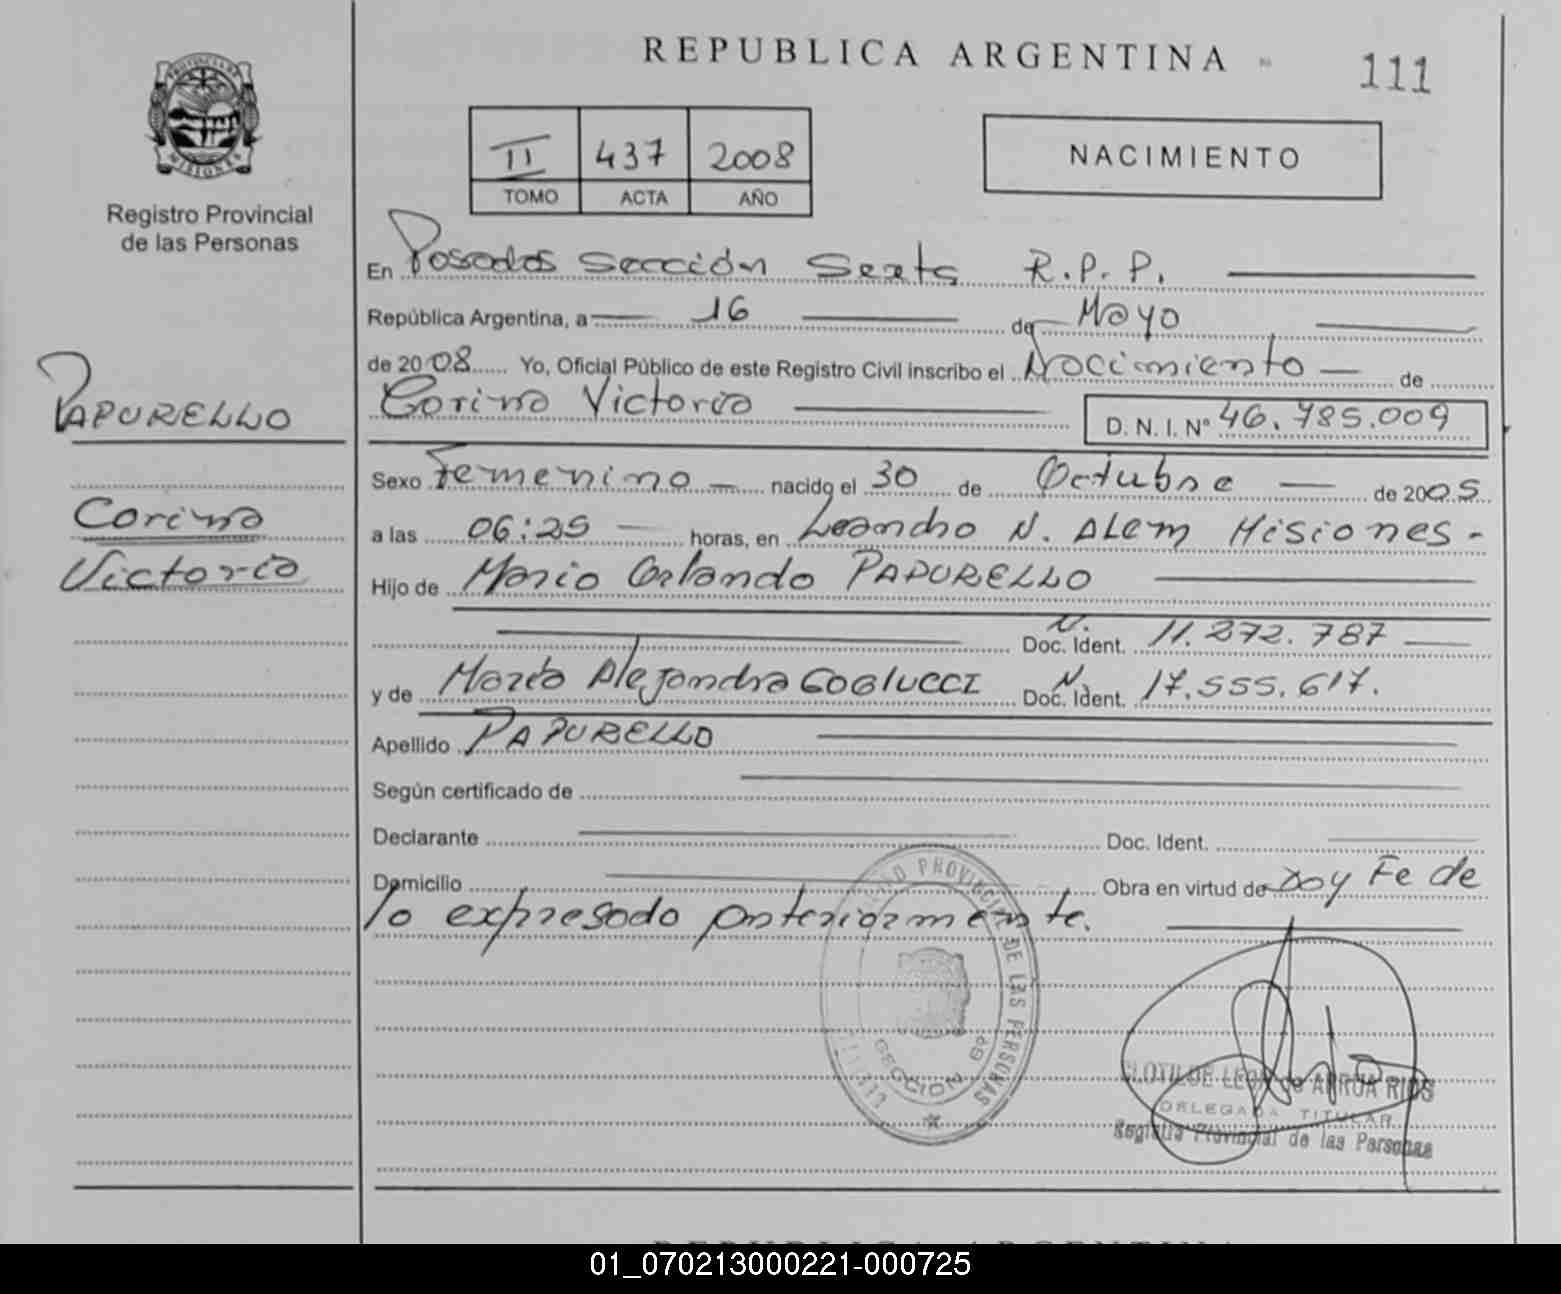 REPUBLICA ARGENTINA
111
PROVINCIA DE
MISIONES
Registro Provincial
de las Personas
II 437 2008
TOMO ACTA AÑO
NACIMIENTO
En Posadas Sección Sexta R.P.P.
República Argentina, a 16 de Mayo
de 2008 Yo, Oficial Público de este Registro Civil inscribo el Nacimiento de
Corina Victoria D. N. I. Nº 46.785.009
PAPURELLO
Corina
Victoria
Sexo Femenino nacido el 30 de Octubre de 2005
a las 06:25 horas, en Leandro N. ALEM Misiones-
Hijo de Mario Orlando PAPURELLO
Doc. Ident. N. 11.272.787
y de María Alejandra COGLUCCI Doc. Ident. N. 17.555.617.
Apellido PAPURELLO
Según certificado de
Declarante Doc. Ident.
Domicilio Obra en virtud de Doy Fe de
lo expresado anteriormente.
PROVINCIAL DE LAS PERSONAS
SECCION 6ª
CLOTILDE de ARRUA RIOS
DELEGADA TITULAR
Registro Provincial de las Personas
REPUBLICA ARGENTINA
01_070213000221-000725